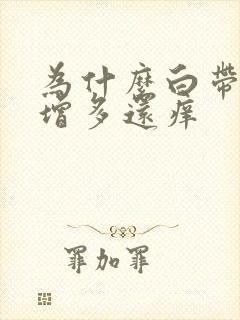 为什麼白帶
增多還痒
罪加罪